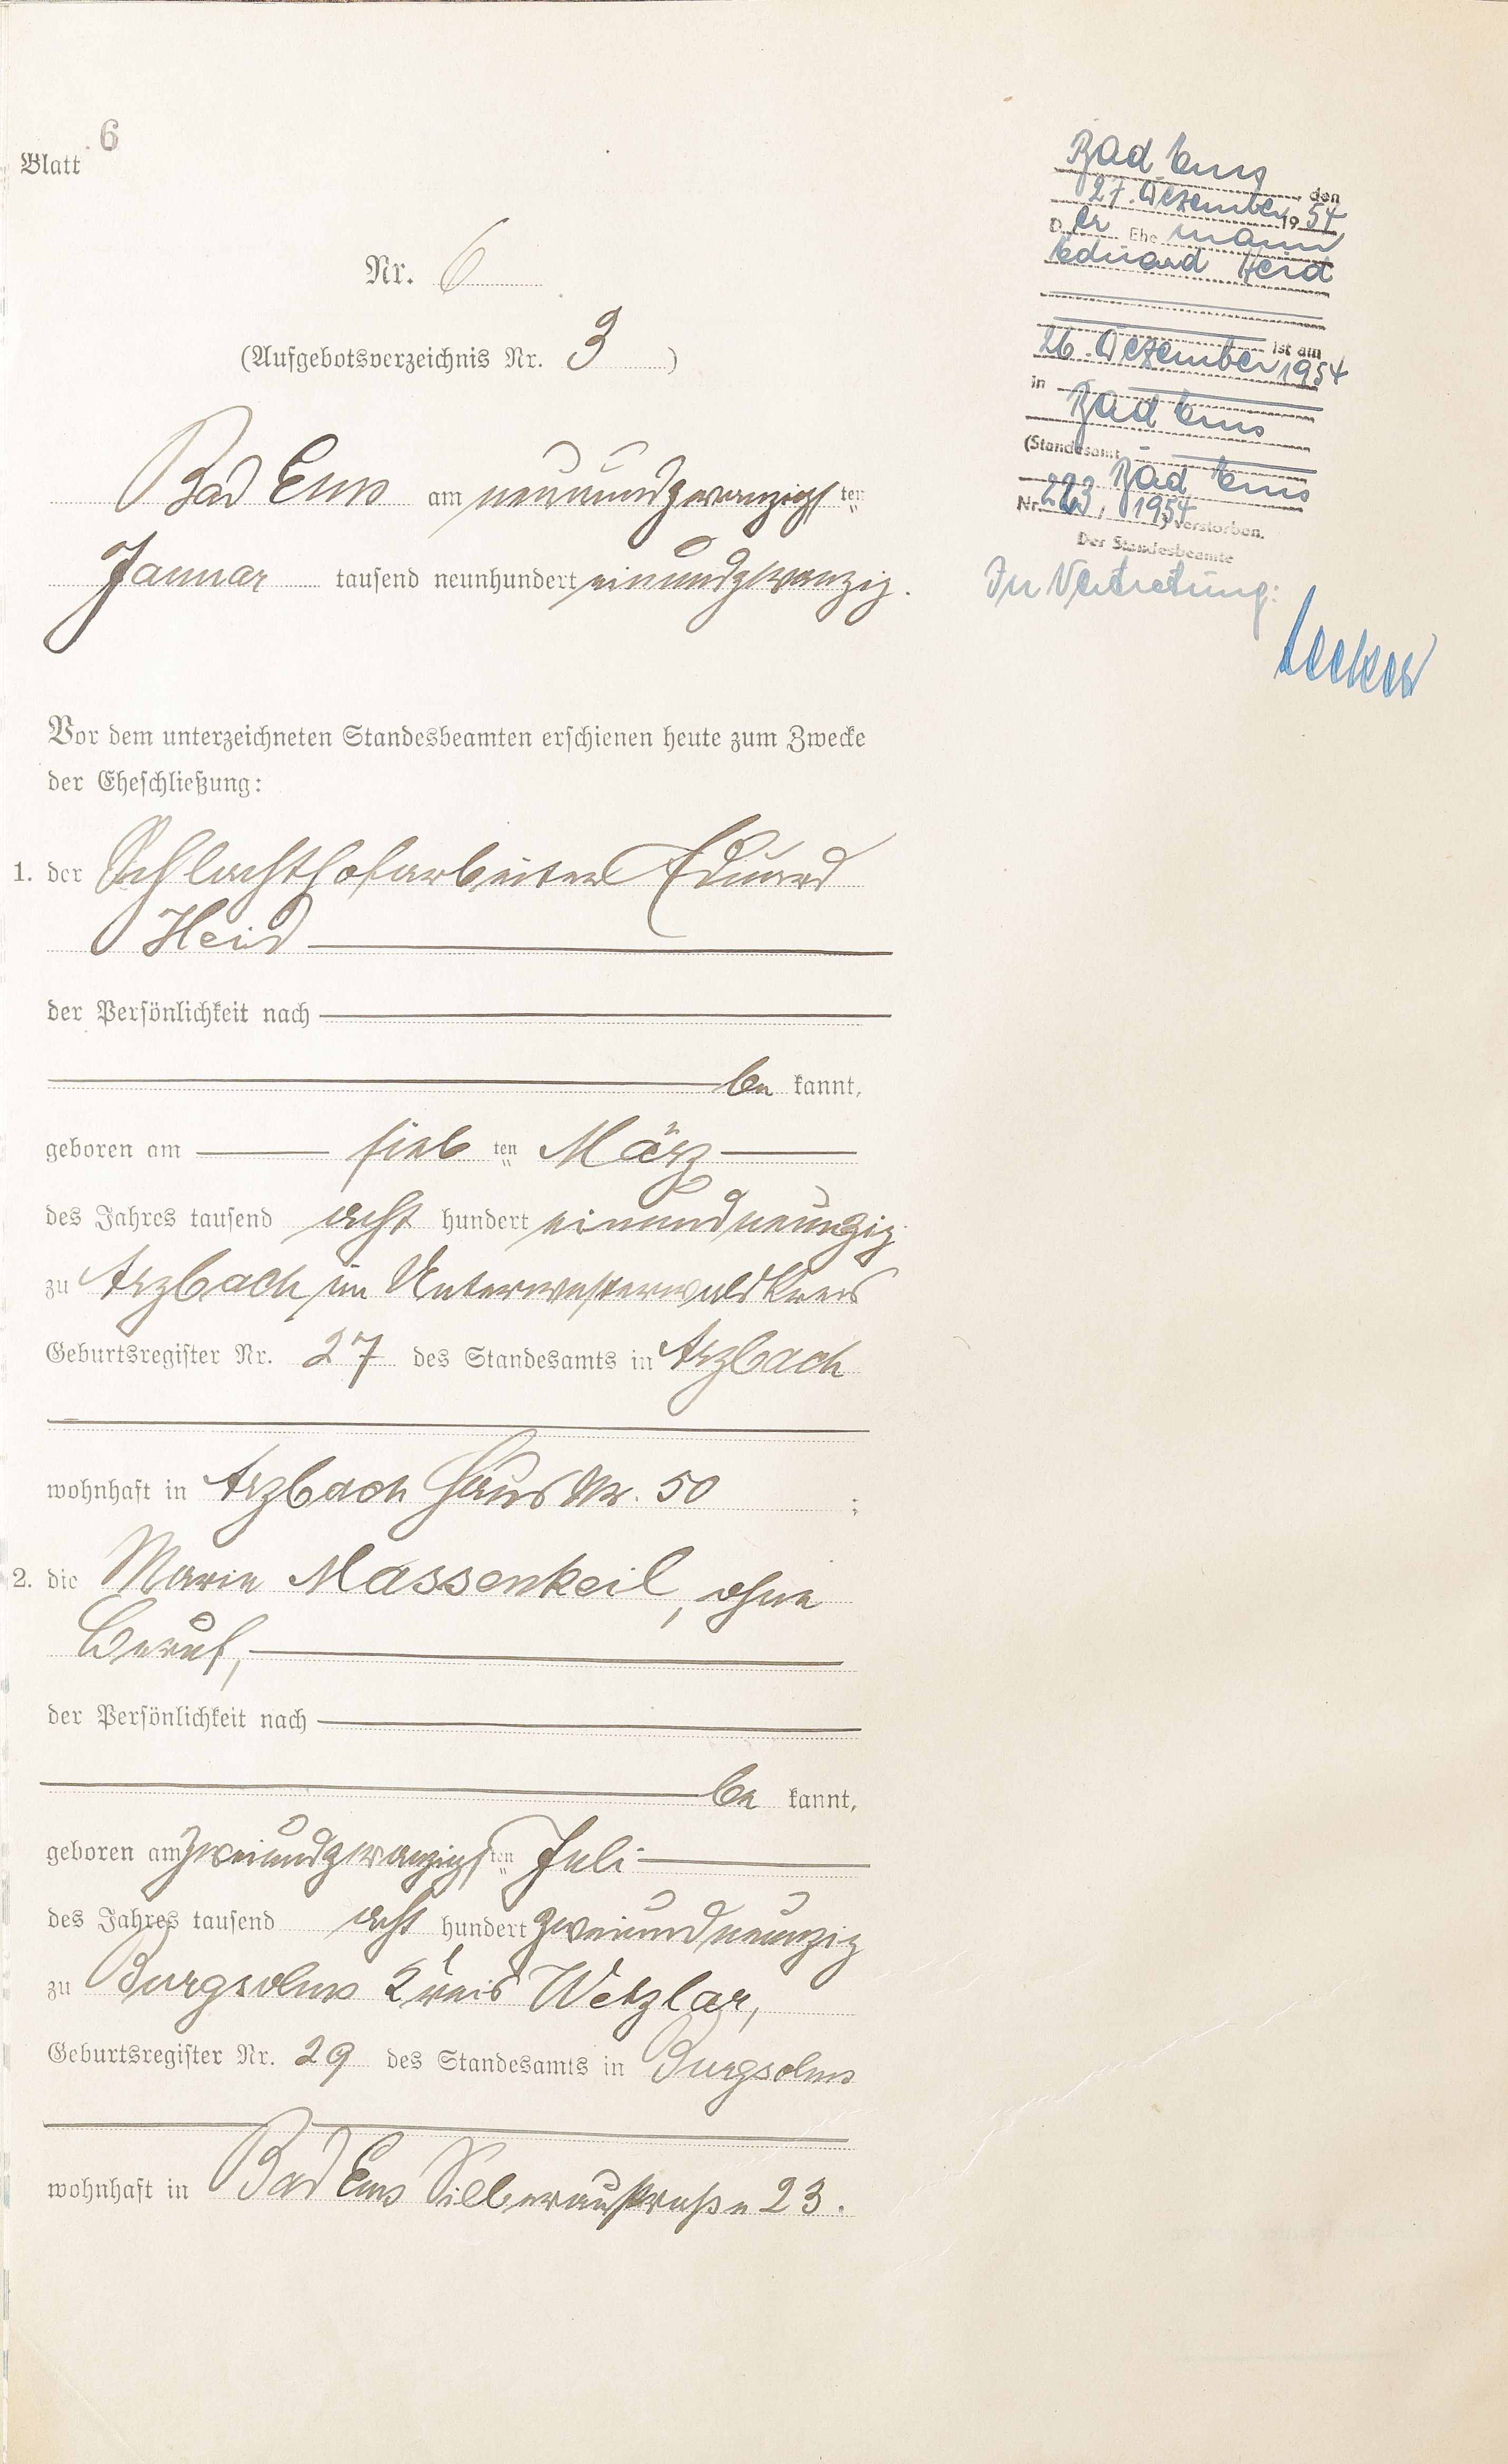 Blatt 6
Nr. 6
(Aufgebotsverzeichnis Nr. 3)
Bad Ems am neunundzwanzigsten
Januar tausend neunhundert einundzwanzig.
Vor dem unterzeichneten Standesbeamten erschienen heute zum Zwecke
der Eheschließung:
1. der Schlachthofarbeiter Eduard
Heid
der Persönlichkeit nach
be kannt,
geboren am sieb ten März
des Jahres tausend acht hundert einundneunzig
zu Arzbach im Unterwesterwaldkreis
Geburtsregister Nr. 27 des Standesamts in Arzbach
wohnhaft in Arzbach Haus Nr. 50 ;
2. die Marie Massenkeil, ohne
Beruf,
der Persönlichkeit nach
be kannt,
geboren am zweiundzwanzigsten Juli
des Jahres tausend acht hundert zweiundneunzig
zu Burgsolms Kreis Wetzlar,
Geburtsregister Nr. 29 des Standesamts in Burgsolms
wohnhaft in Bad Ems Silberaustraße 23.
Bad Ems, den
27. Dezember 1954
Der Ehemann
Eduard Heid
ist am
26. Dezember 1954
in
Bad Ems
(Standesamt
Bad Ems
Nr. 223, 1954) verstorben.
Der Standesbeamte
In Vertretung: